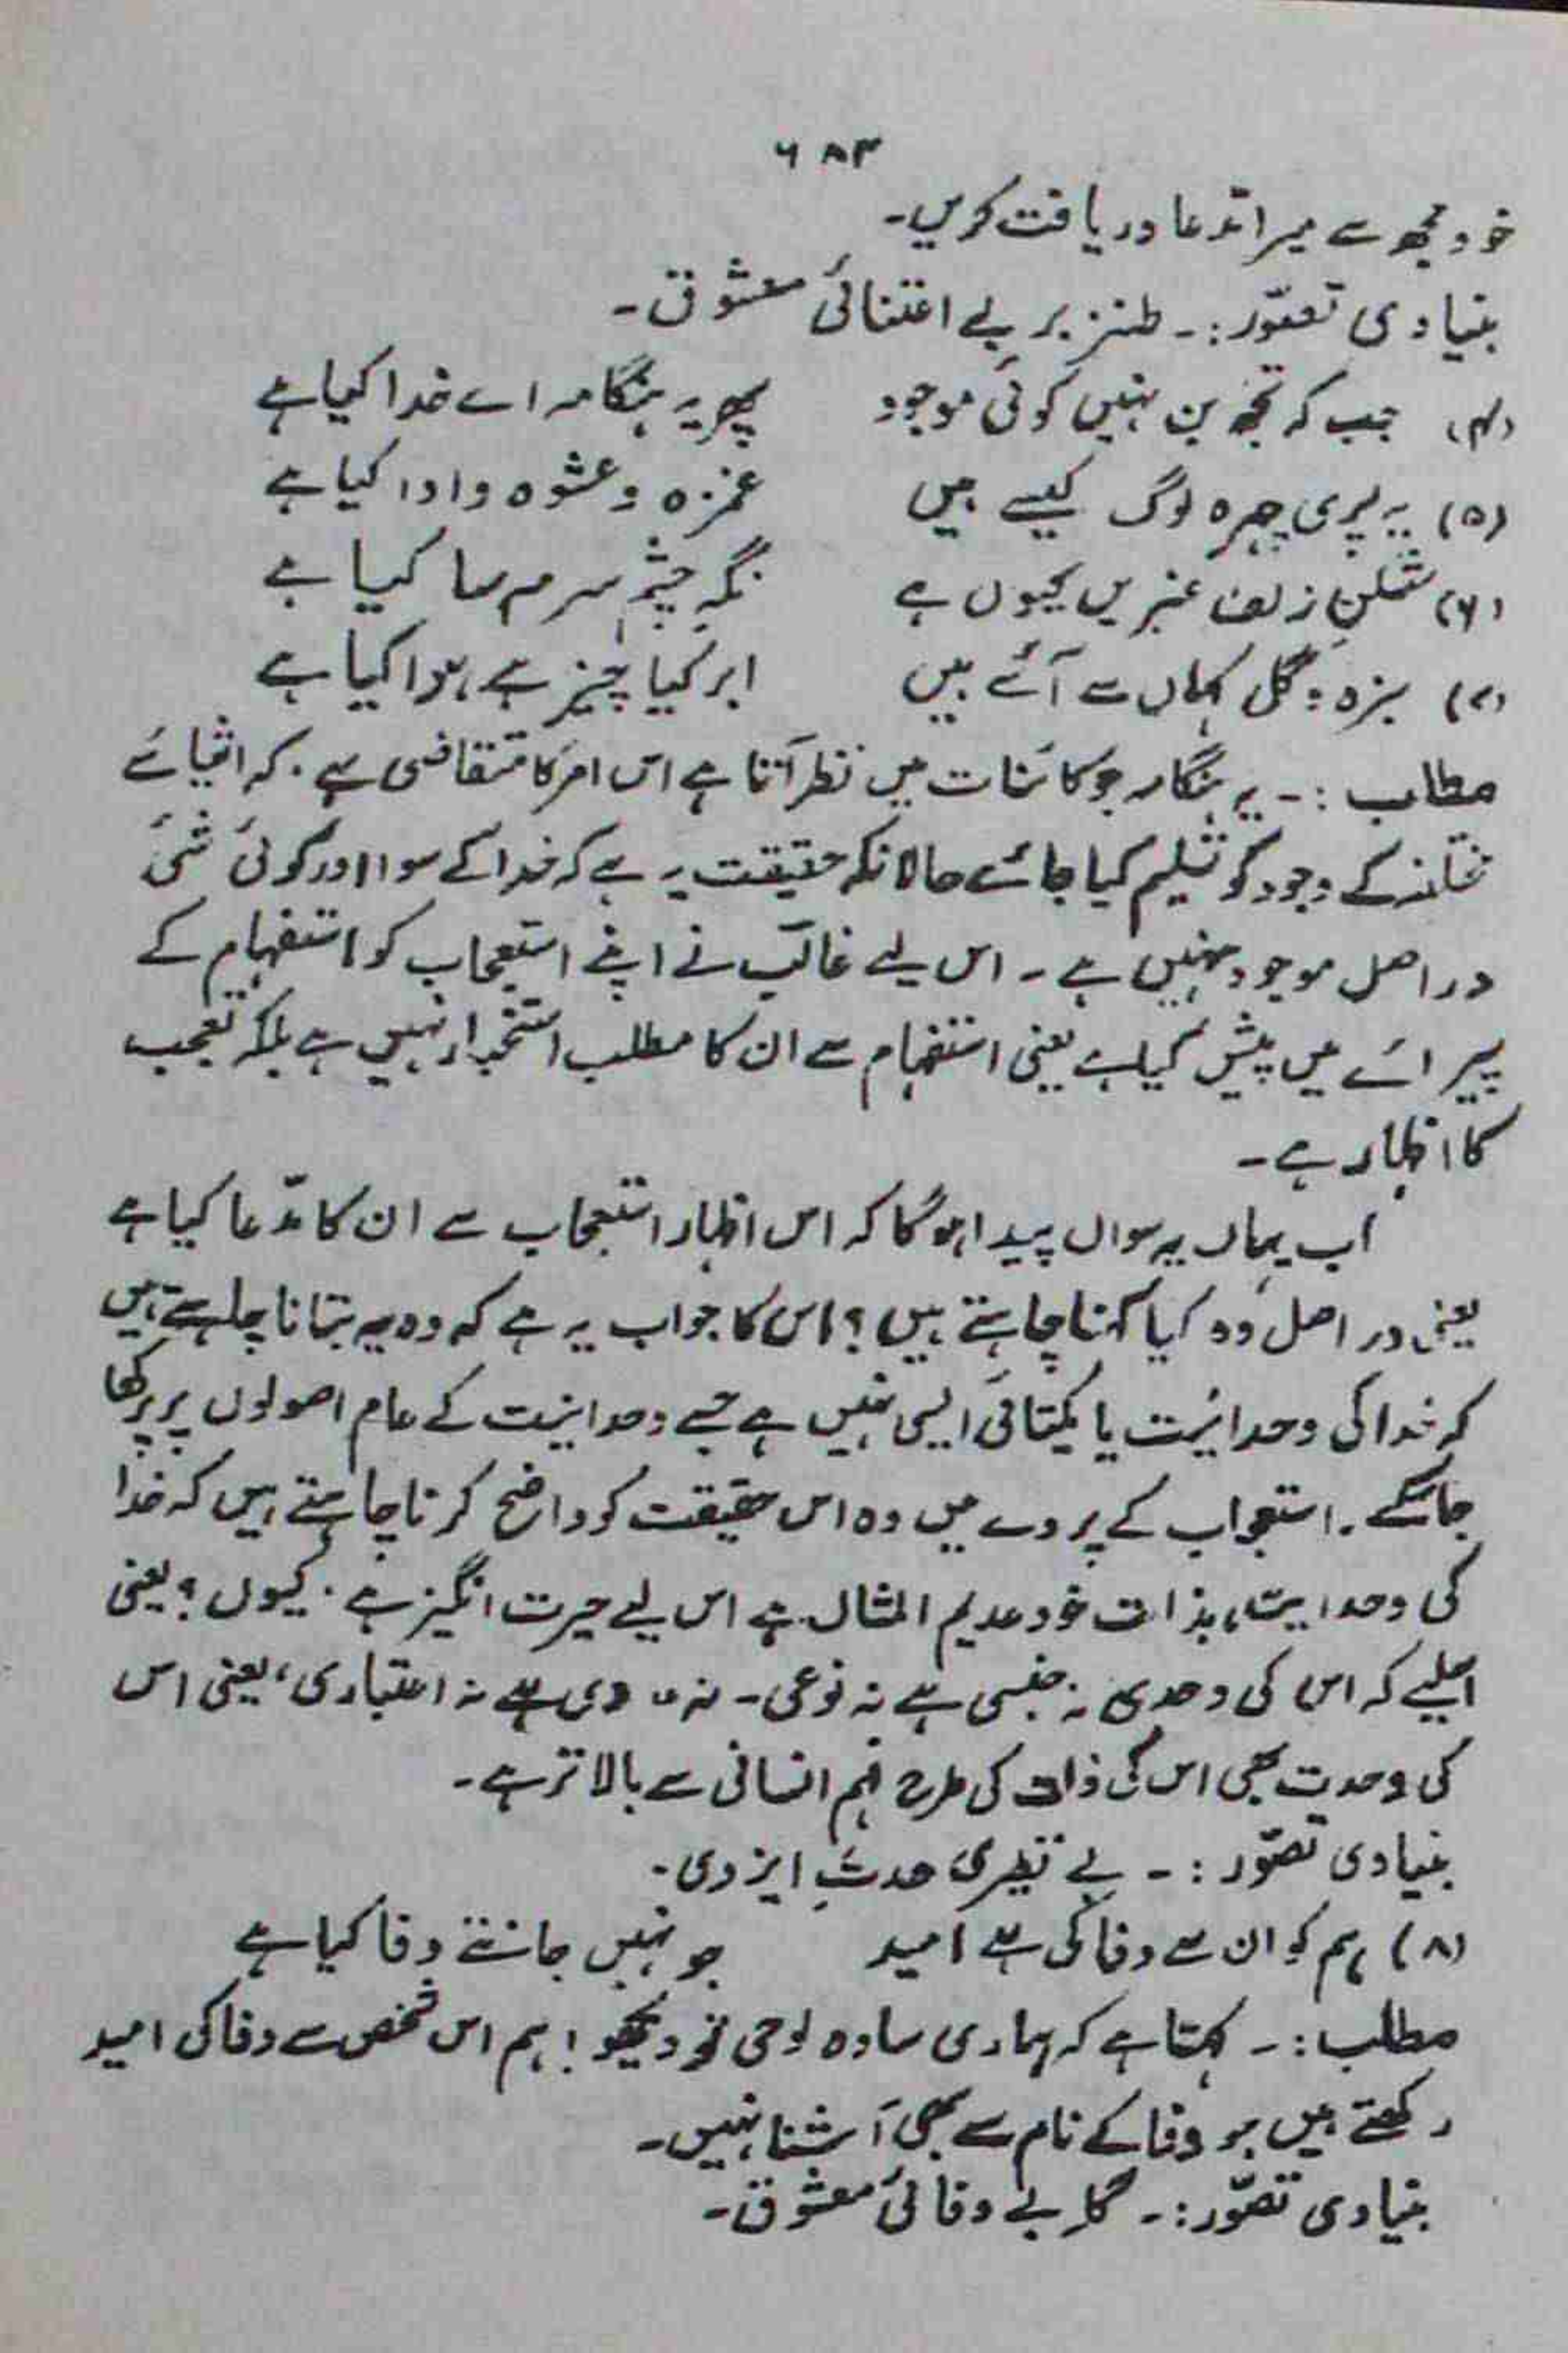 ۶۸۳
خود مجھ سے میرا مدّعا دریافت کریں۔
بنیادی تصوّر:۔ طنز بر بے اعتنائی معشوق۔
(۴) جب کہ تجھ بن نہیں کوئی موجود پھر یہ ہنگامہ اے خدا کیا ہے
(۵) یہ پری چہرہ لوگ کیسے ہیں غمزہ و عشوہ و ادا کیا ہے
(۶) شکنِ زلف عنبریں کیوں ہے نگہِ چشم سرمہ سا کیا ہے
(۷) سبزہ و گل کہاں سے آئے ہیں ابر کیا چیز ہے، ہوا کیا ہے
مطلب :۔ یہ ہنگامہ جو کائنات میں نظر آتا ہے اس امر کا متقاضی ہے۔ کہ اشیائے
مختلفہ کے وجود کو تسلیم کیا جائے حالانکہ حقیقت یہ ہے کہ خدا کے سوا اور کوئی شئ
در اصل موجود نہیں ہے۔ اس لیے غالب نے اپنے استعجاب کو استفہام کے
پیرائے میں پیش کیا ہے یعنی استفہام سے ان کا مطلب استخبار نہیں ہے بلکہ تعجب
کا اظہار ہے۔
اب یہاں یہ سوال پیدا ہوگا کہ اس اظہار استعجاب سے ان کا مدّعا کیا ہے
یعنی در اصل وہ کیا کہنا چاہتے ہیں؟ اس کا جواب یہ ہے کہ وہ یہ بتانا چاہتے ہیں
کہ خدا کی وحدانیت یا یکتائی ایسی نہیں ہے جسے وحدانیت کے عام اصولوں پر پرکھا
جاسکے۔ استعجاب کے پردے میں وہ اس حقیقت کو واضح کرنا چاہتے ہیں کہ خدا
کی وحدانیت، بذات خود عدیم المثال ہے اس لیے حیرت انگیز ہے۔ کیوں؟ یعنی
اسلیے کہ اس کی وحدت نہ جنسی ہے نہ نوعی۔ نہ عددی ہے نہ اعتباری، یعنی اس
کی وحدت بھی اس کی ذات کی طرح فہم انسانی سے بالاتر ہے۔
بنیادی تصوّر :۔ بے نظیری حدتِ ایزدی۔
(۸) ہم کو ان سے وفا کی ہے امید جو نہیں جانتے وفا کیا ہے
مطلب:۔ کہتا ہے کہ ہماری سادہ لوحی تو دیکھو! ہم اس شخص سے وفا کی امید
رکھتے ہیں جو وفا کے نام سے بھی آشنا نہیں۔
بنیادی تصوّر:۔ گلہِ بے وفائی معشوق۔